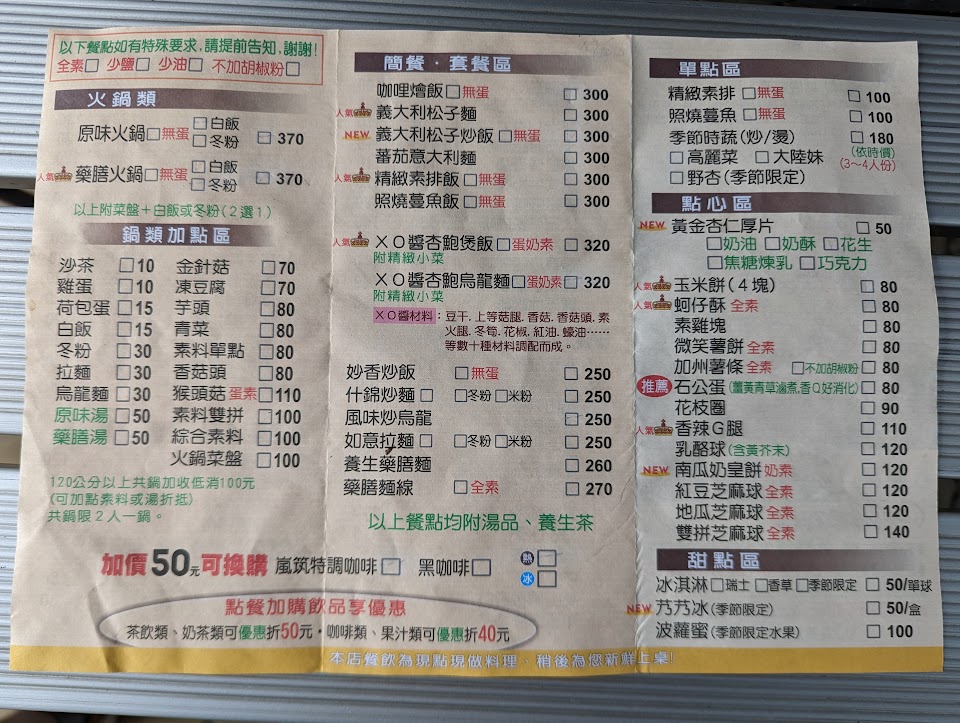 以下餐點如有特殊要求,請提前告知,謝謝!
全素□ 少鹽□ 少油□ 不加胡椒粉□
火鍋類
原味火鍋□無蛋 □白飯 □冬粉 □ 370
人氣 藥膳火鍋□無蛋 □白飯 □冬粉 □ 370
以上附菜盤+白飯或冬粉(2選1)
鍋類加點區
沙茶 □10 金針菇 □70
雞蛋 □10 凍豆腐 □70
荷包蛋□15 芋頭 □80
白飯 □15 青菜 □80
冬粉 □30 素料單點 □80
拉麵 □30 香菇頭 □80
烏龍麵□30 猴頭菇蛋素□110
原味湯□50 素料雙拼□100
藥膳湯□50 綜合素料□100
火鍋菜盤□100
120公分以上共鍋加收低消100元
(可加點素料或湯折抵)
共鍋限2人一鍋。
簡餐·套餐區
咖哩燴飯□無蛋 □ 300
人氣 義大利松子麵 □ 300
NEW 義大利松子炒飯□無蛋 □ 300
蕃茄意大利麵 □ 300
人氣 精緻素排飯□無蛋 □ 300
照燒蔓魚飯□無蛋 □ 300
人氣 XO醬杏鮑煲飯□蛋奶素 □ 320
附精緻小菜
XO醬杏鮑烏龍麵□蛋奶素 □ 320
附精緻小菜
XO醬材料:豆干.上等菇腿.香菇.香菇頭.素
火腿.冬筍.花椒.紅油.蠔油……
等數十種材料調配而成。
妙香炒飯 □無蛋 □ 250
什錦炒麵□ □冬粉□米粉 □ 250
風味炒烏龍 □ 250
如意拉麵□ □冬粉□米粉 □ 250
養生藥膳麵 □ 260
藥膳麵線 □全素 □ 270
以上餐點均附湯品、養生茶
加價50元可換購 嵐筑特調咖啡□ 黑咖啡□ 熱□ 冰□
點餐加購飲品享優惠
茶飲類、奶茶類可優惠折50元·咖啡類、果汁類可優惠折40元
單點區
精緻素排 □無蛋 □ 100
照燒蔓魚 □無蛋 □ 100
季節時蔬(炒/燙) □ 180
□高麗菜 □大陸妹 (依時價)
□野杏(季節限定) (3~4人份)
點心區
NEW 黃金杏仁厚片 □ 50
□奶油 □奶酥 □花生
□焦糖煉乳 □巧克力
人氣 玉米餅(4塊) □ 80
人氣 蚵仔酥 全素 □ 80
素雞塊 □ 80
微笑薯餅 全素 □ 80
加州薯條 全素 □不加胡椒粉□ 80
推薦 石公蛋(薑黃青草滷煮,香Q好消化)□ 80
花枝圈 □ 90
人氣 香辣G腿 □ 110
乳酪球(含黃芥末) □ 120
NEW 南瓜奶皇餅 奶素 □ 120
紅豆芝麻球 全素 □ 120
地瓜芝麻球 全素 □ 120
雙拼芝麻球 全素 □ 140
甜點區
冰淇淋□瑞士 □香草 □季節限定 □ 50/單球
NEW 艿艿冰(季節限定) □ 50/盒
波蘿蜜(季節限定水果) □ 100
本店餐飲為現點現做料理、稍後為您新鮮上桌!